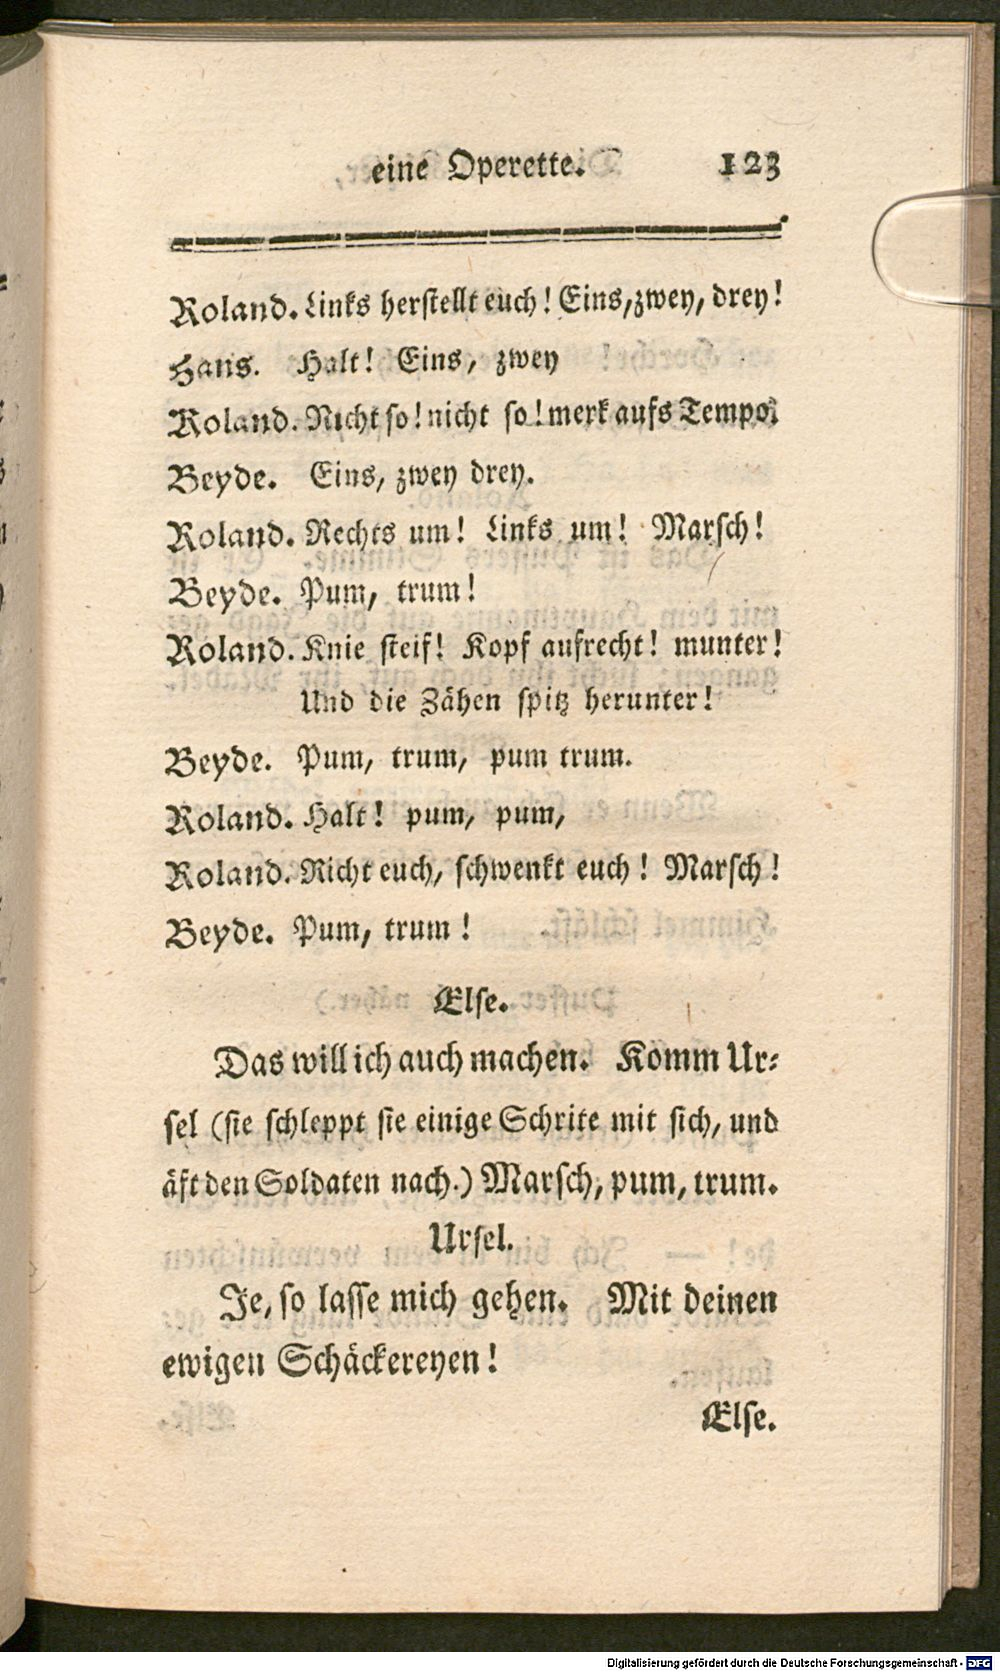 eine Operette. 123
Roland. Links herstellt euch! Eins, zwey, drey!
Hans. Halt! Eins, zwey
Roland. Nicht so! nicht so! merk aufs Tempo!
Beyde. Eins, zwey drey.
Roland. Rechts um! Links um! Marsch!
Beyde. Pum, trum!
Roland. Knie steif! Kopf aufrecht! munter!
Und die Zähen spitz herunter!
Beyde. Pum, trum, pum trum.
Roland. Halt! pum, pum,
Roland. Richt euch, schwenkt euch! Marsch!
Beyde. Pum, trum!
Else.
Das will ich auch machen. Komm Ur-
sel (sie schleppt sie einige Schrite mit sich, und
äft den Soldaten nach.) Marsch, pum, trum.
Ursel.
Je, so lasse mich gehen. Mit deinen
ewigen Schäckereyen!
Else.
Digitalisierung gefördert durch die Deutsche Forschungsgemeinschaft - DFG